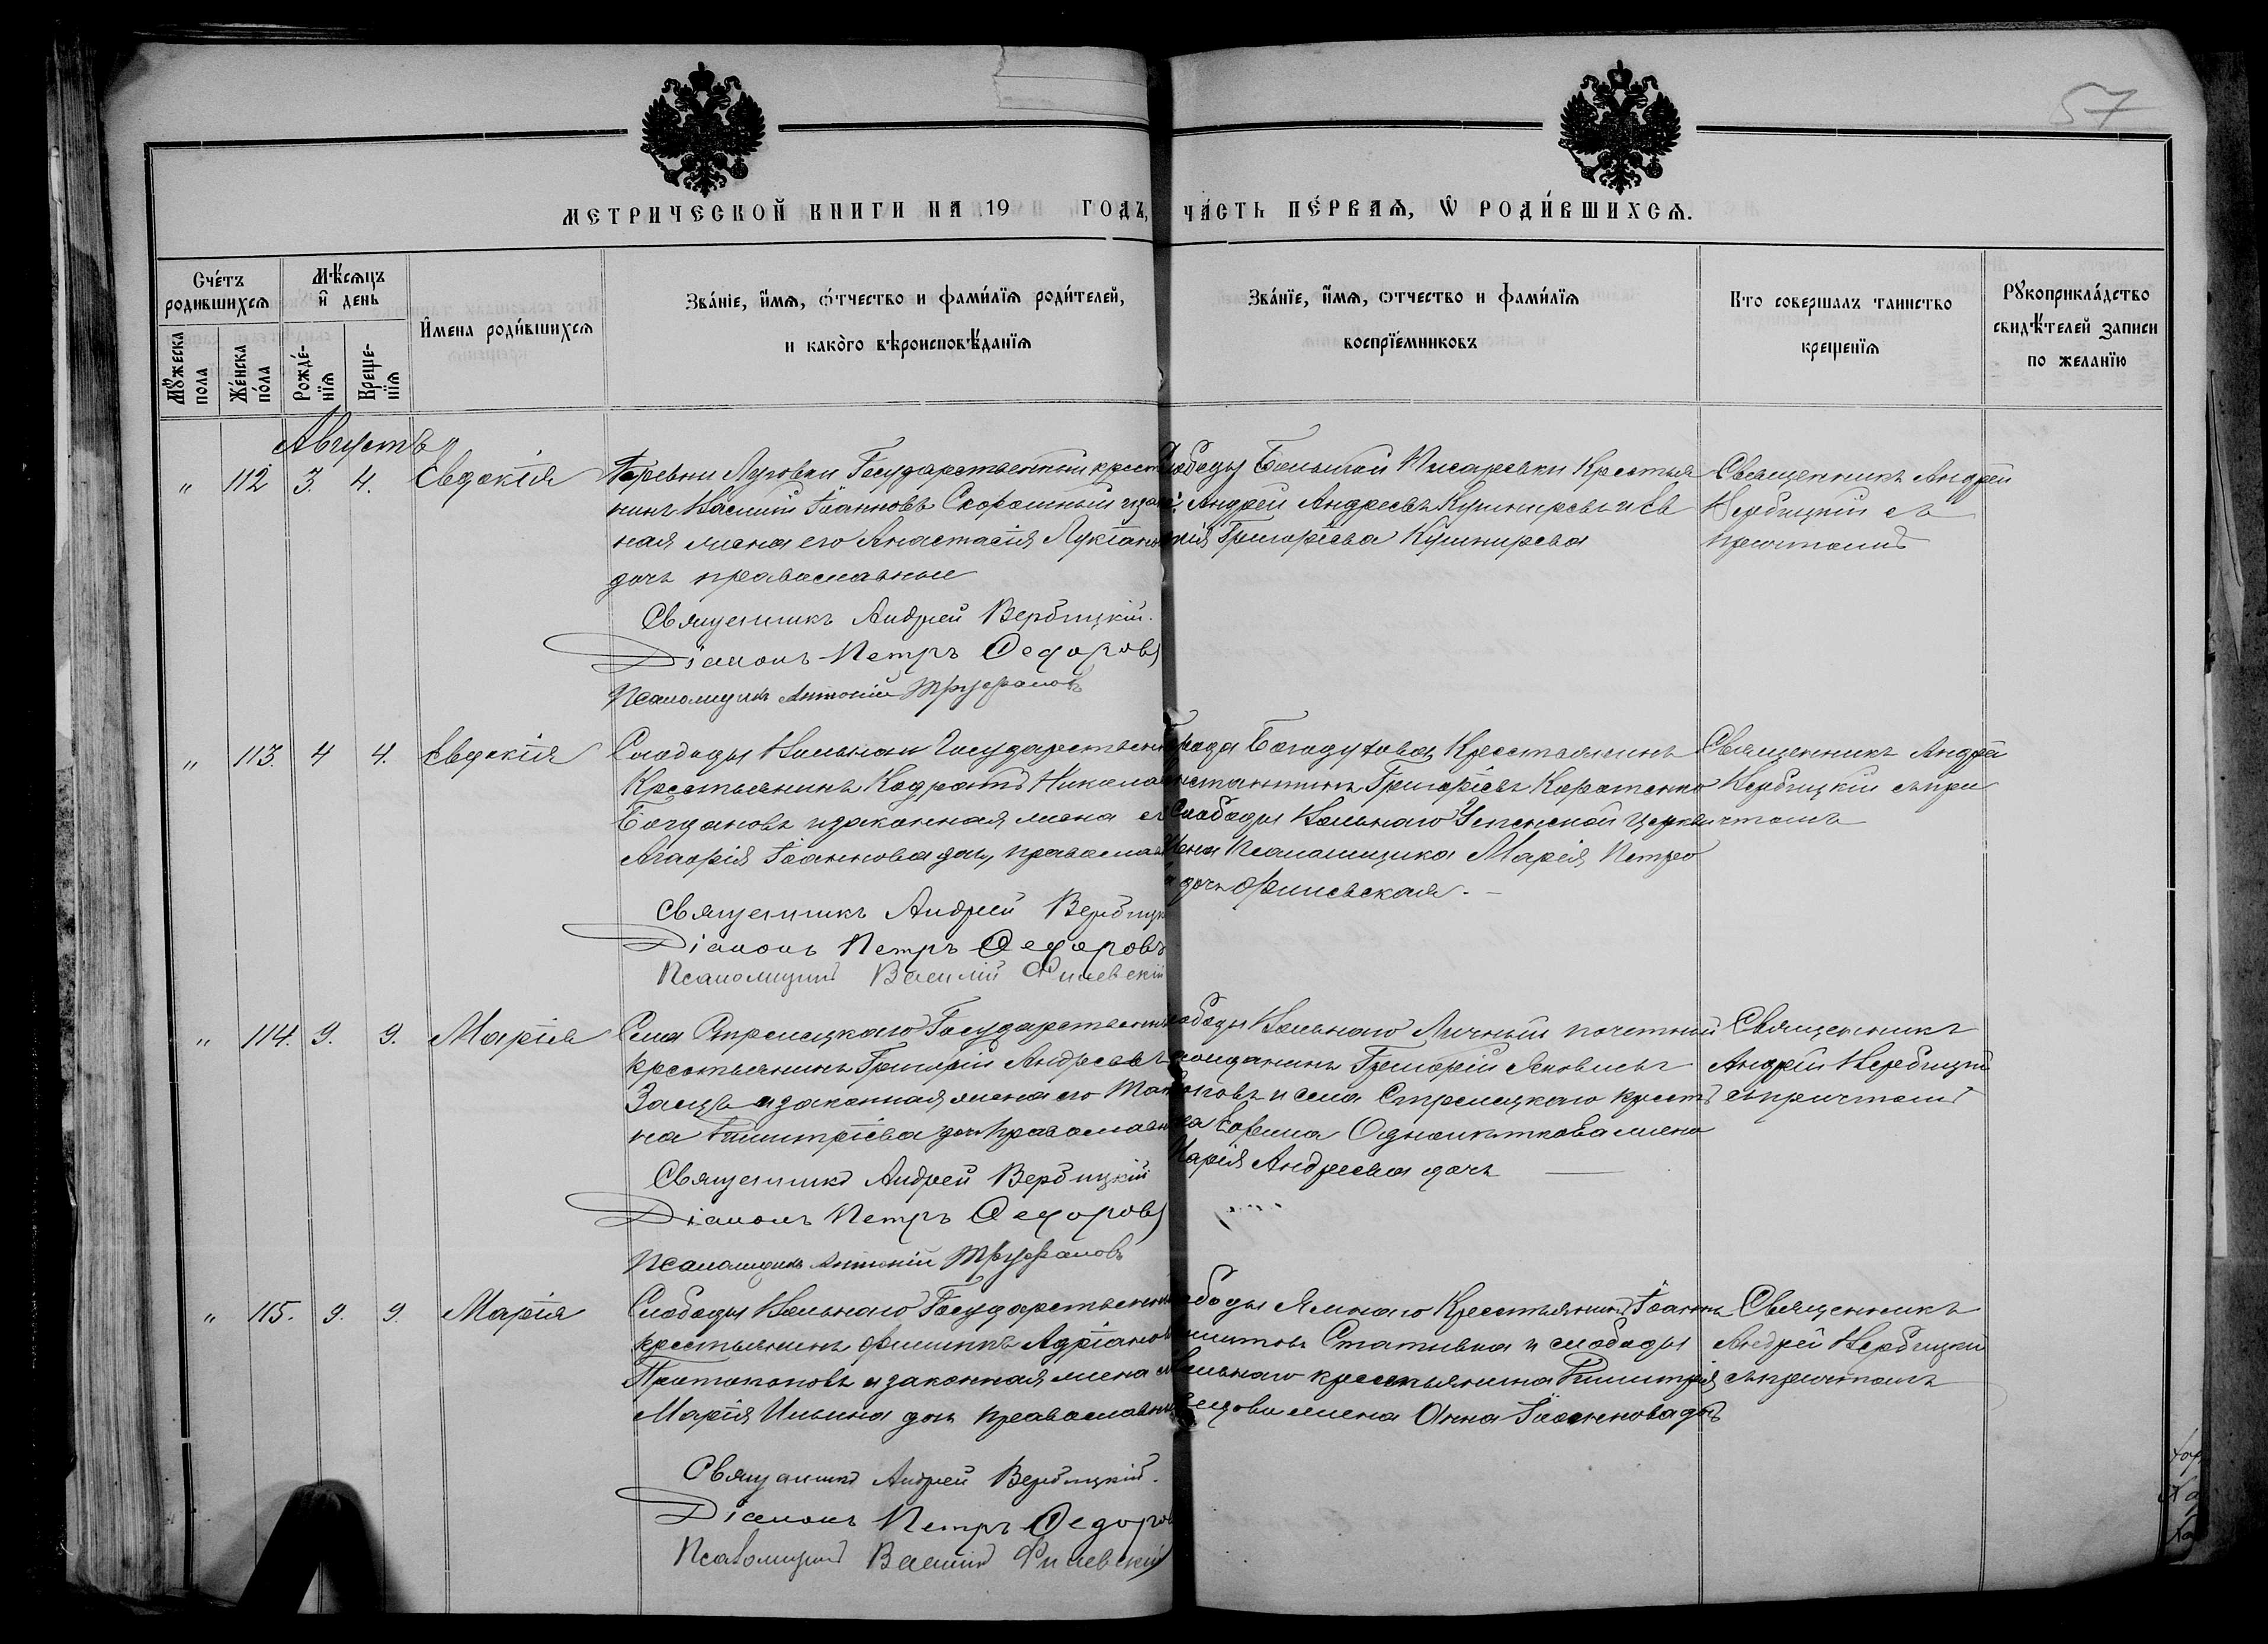 57
МЕТРИЧЕСКОЙ КНИГИ НА 19 ГОДЪ, ЧА́СТЬ ПЕ́РВАѦ, Ѡ҆ РОДИ́ВШИХСѦ.
Сче́тъ родившихсѧ
Мꙋ́жеска пола
Же́нска по́ла
Мѣ́сѧцъ и҆ день
Рожде́нїѧ
Креще́нїѧ
И҆мена роди́вшихсѧ
Зва́нїе, и҆́мѧ, ѻ҆́тчество и фами́лїѧ роди́телей,
и како́го вѣроисповѣ́данїѧ
Зва́нїе, и҆́мѧ, ѻтчество и фами́лїѧ
воспрїе́мниковъ
Кто совершалъ таинство
крещенїѧ
Рꙋкоприкла́дство
свидѣ́телей записи
по желанїю
Августъ
" 112 3. 4. Евдокія
Деревни Луговки Государственный крест
нинъ Василій Іоанновъ Скорошный и зако
ная жена его Анастасія Лукіано
дочь православные
Священникъ Андрей Вербицкій.
Діаконъ Петръ Ѳедоровъ
Псаломщикъ Антоній Труфановъ
слободы Большой Писаревки Крестья
Андрей Андреевъ Кушниревъ и Ев
кія Григоріева Кушнирева
Священникъ Андрей
Вербицкій съ
причтомъ
" 113. 4 4. Евдокія
Слободы Вольнаго Государствен
Крестьянинъ Кодратъ Никола
Богдановъ и законная жена е
Агафія Іоаннова дочь, правосла
Священникъ Андрей Вербицк
Діаконъ Петръ Ѳедоровъ
Псаломщикъ Василій Филевскій
Города Богодухова Крестьянинъ
Константинъ Григорьевъ Коротенко
Слободы Вольнаго Успенской церкви
Жена Псаломщика Марія Петро
дочь Филевская.
Священникъ Андрей
Вербицкій съ при
чтомъ
" 114. 9. 9. Марія
Села Стрелецкаго Государственны
крестьянинъ Григорій Андреевъ
Заецъ и законная жена его Тать
на Димитріева дочь Православн
Священникъ Андрей Вербицкій
Діаконъ Петръ Ѳедоровъ
Псаломщикъ Антоній Труфановъ
слободы Вольнаго Личный почетный
гражданинъ Григорій Яковлевъ
и села Стрелецкаго крест
Ефима жена
Марія Андреева дочь
Священникъ
Андрей Вербицкій
съ причтомъ
" 115. 9. 9. Марія
Слободы Вольнаго Государственн
крестьянинъ Филиппъ Адріанов
Протопоповъ и законная жена е
Марія Ильина дочь православны
Священникъ Андрей Вербицкій.
Діаконъ Петръ Ѳедоров
Псаломщикъ Василій Филевскій
слободы Ямнаго Крестьянинъ Іоаннъ
Стативка и слободы
Вольнаго крестьянина Димитрія
жена Анна Іоаннова дочь
Священникъ
Андрей Вербицкій
съ причтомъ